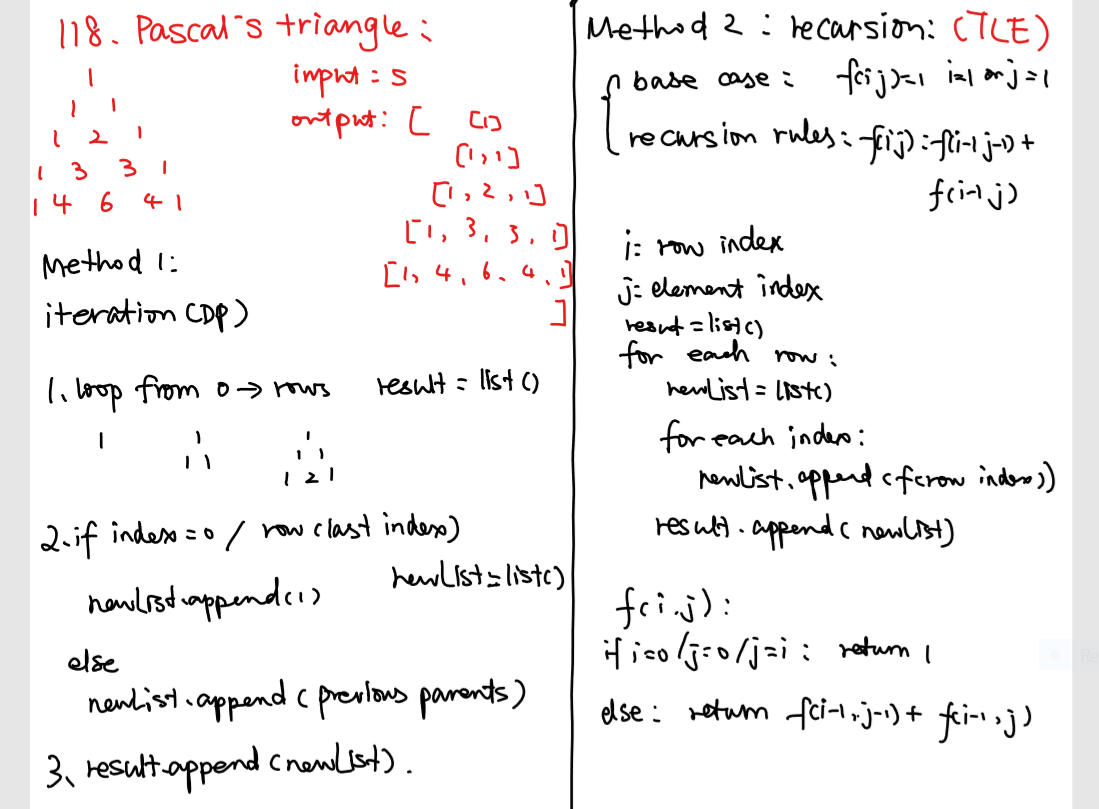 118. Pascal's triangle:
1
1 1
1 2 1
1 3 3 1
1 4 6 4 1
input = 5
output: [ [1]
[1,1]
[1, 2, 1]
[1, 3, 3, 1]
[1, 4, 6. 4, 1]
]
Method 1:
iteration (DP)
1. loop from 0 → rows result = list ()
1 1 1
1 1 1 1
1 2 1
2. if index = 0 / row (last index)
newList = list()
newList.append(1)
else
newList.append ( previous parents)
3、result.append (newList).
Method 2 : recarsion: (TLE)
base case : f(ij)=1 i=1 or j=1
recursion rules: f(ij) : f(i-1 j-1) +
f(i-1 j)
i: row index
j: element index
result = list()
for each row :
newList = list()
for each index :
newList.append (f(row index))
result.append ( newList)
f(i.j) :
if i=0 / j=0 / j=i : return 1
else : return f(i-1, j-1) + f(i-1, j)